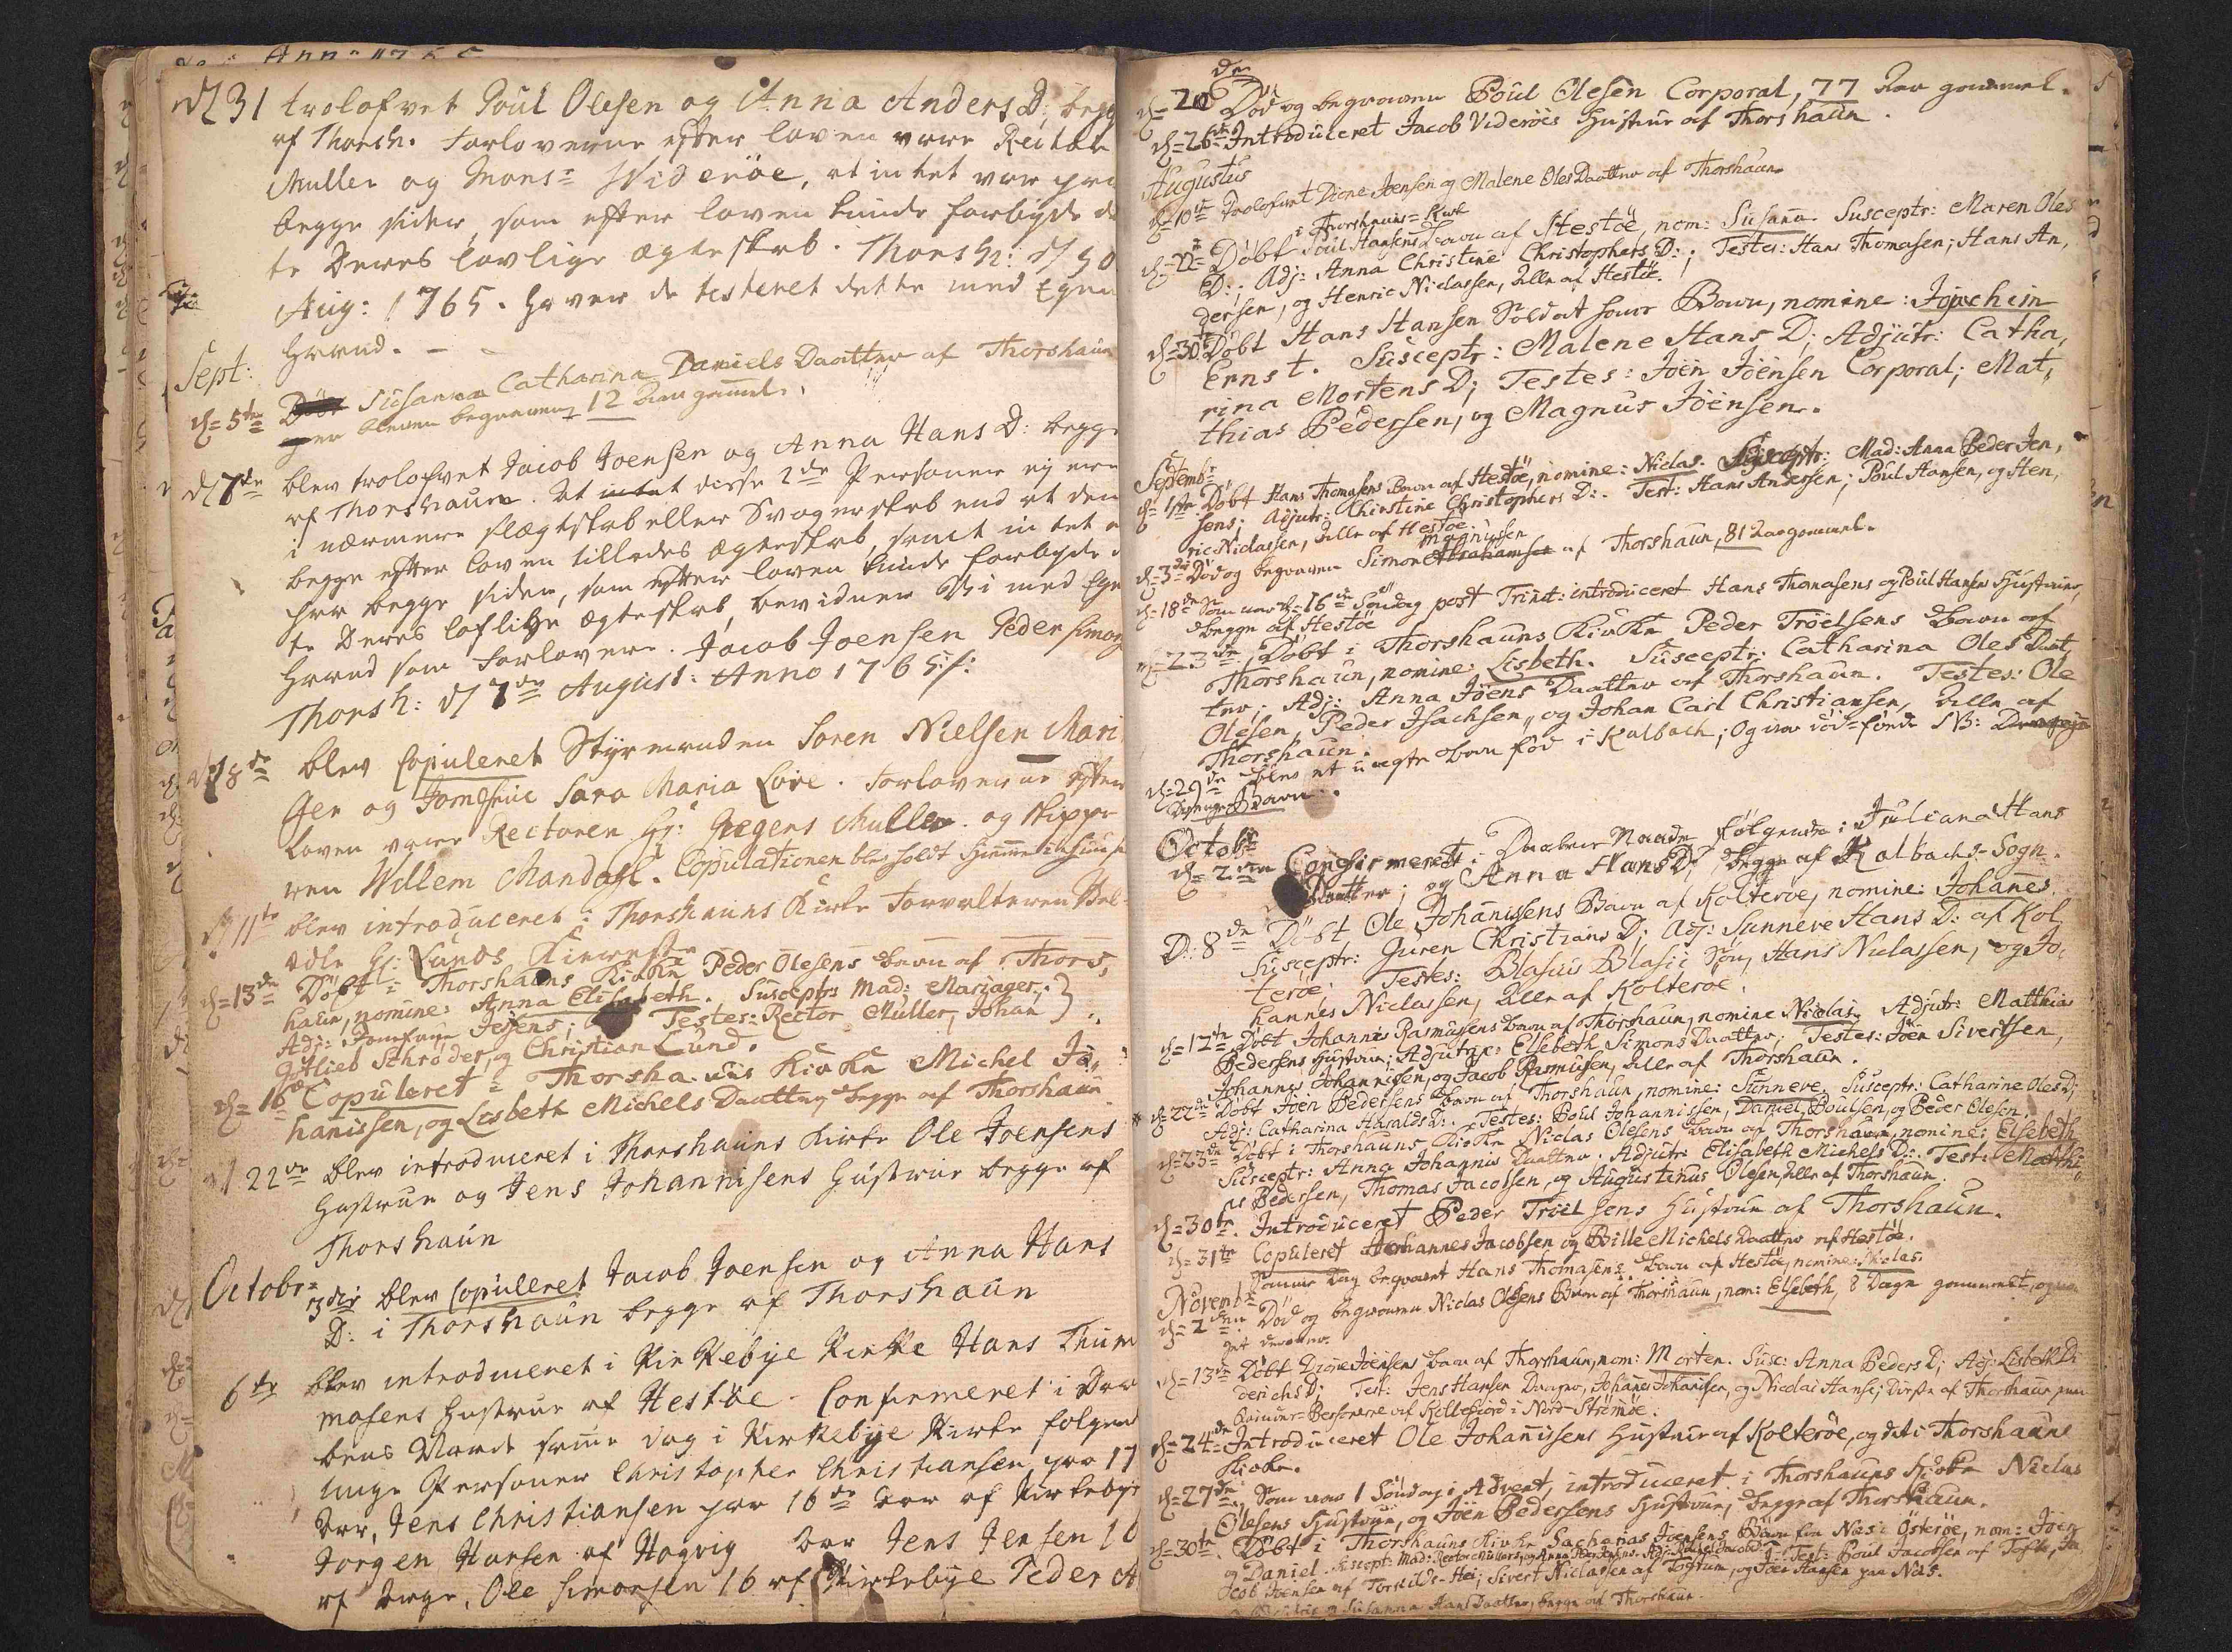 d 31 trolofvet Poul Olesen og Anna Anders D; begge
af Thorsh. Forloverne efter loven vare Rector
Muller og Monsr Wideröe, at intet var paa
begge sider, som efter loven kunde forbyde
te Deres lovlige ægteskab. Thorsh: d/ 30
Aug: 1765. har de testeret dette med Egen
Haand.
Sept:
d= 5te Susanna Catharina Daniels Daatter af Thorshaun
bleven begraven, 12 Aar gamel.
d 7de blev trolofvet Jacob Joensen og Anna Hans D: begge
af Thorshaun. At disse 2de Personer ej ere
i nærmere slægtskab eller Svogerskab end at dem
begge efter loven tillades ægteskab, samt intet
paa begge sider, som efter loven kunde forbyde
te Deres loflige ægteskab, bevidner Vi med Egen
Haand som Forlovere. Jacob Joensen Peder Simons
Thorsh: d 7de August: Anno 1765
d 8de blev Copuleret Styrmanden Soren Nielsen Mari
ger og Jomfrue Sara Maria Love. Forloverne efter
Loven vare Rectoren Hr: Gregers Muller og Skippe
ren Willem Mandahl. Copulationen blev holdt hjemme i huuset
d 11te blev introduceret i Thorshauns Kirke Forvalteren Vel
ædle Hr: Lunds Kiereste
d= 13de Döbt i Thorshauns Kirke Peder Olesens Barn af Thors,
haun, nomine: Anna Elisabeth. Susceptrs Mad: Mariager;
Adj: Jomfrue Jessens; Testes: Rector Muller, Johan
Gotlieb Schröder, og Christian Lund.
d= 16 Copuleret i Thorshauns Kirke Michel Jo,
hanissen, og Lisbeth Michels Daatter, begge af Thorshaun.
d 22de blev introduceret i Thorshauns Kirke Ole Joensens
Hustrue og Jens Johannisens Hustrue begge af
Thorshaun
Octobr=
3die blev Copuleret Jacob Joensen og Anna Hans
D: i Thorshaun begge af Thorshaun
6te blev introduceret i Kirkebye Kirke Hans Thom
masens Hustrue af Hestöe. Confirmeret i Daa
bens Naade samme dag i Kirkebye Kirke folgende
unge Personer Christopher Christiansen paa 17
Aar, Jens Christiansen paa 16de Aar af Kirkebye
Jorgen Hansen af Hogvig Aar Jens Jensen 16
af Ole Simonsen 16 af Kirkebye Peder
d= 20de Död og begraven Poul Olesen Corporal, 77 Aar gammel.
d= 26de Introduceret Jacob Videröes Hustrue af Thorshaun.
Augustus
d= 10de Trolofvet Dione Joensen og Malene Oles Daatter af Thorshaun
i Thorshauns= Kirk
d= 22de Döbt Poul Hansens Barn af Hestöe, nom: Susana. Susceptr: Maren Oles
D:; Adj: Anna Christine Christophers D:; Testes: Hans Thomasen; Hans An,
dersen, og Henric Niclassen, Alle af Hestöe.
d= 30te Döbt Hans Hansen Soldat hans Barn, nomine: Joachim
Ernst. Susceptr: Malene Hans D; Adjutr: Catha,
rina Mortens D; Testes: Jöen Jöensen Corporal; Mat,
thias Pedersen, og Magnus Jöensen.
Septembr
d= 1ste Döbt Hans Thomasens Barn af Hestöe, nomine: Niclas. Susceptr: Mad: Anna Peder Jen,
sens; Adjutr: Christine Christophers D:. Test: Hans Andersen; Poul Hansen, og Hen,
ric Niclassen, Alle af Hestöe.
Magnussen
d= 3die Död og begraven Simon Abrahamsen af Thorshaun, 81 Aar gammel.
d= 18de Som var d= 16de Söndag post Trinit: introduceret Hans Thomasens og Poul Hansens Hustruer,
Begge af Hestöe
d= 23de Döbt i Thorshauns Kirke Peder Tröelsens Barn af
Thorshaun, nomine: Lisbeth. Susceptr: Catharina Oles Daat,
ter; Adj: Anna Jöens Daatter af Thorshaun. Testes: Ole
Olesen, Peder Isachsen, og Johan Carl Christiansen, Alle af
Thorshaun.
d= 29de blev et uægte Barn fød i Kalbach; Og var død-fød NB:
Drenge Barn.
Octobr
d= 2den Confirmeret i Daabens Naade følgende: Juliana Hans
Daatter; og Anna Hans D; begge af Kalbachs Sogn.
D: 8de Döbt Ole Johannisens Barn af Kolteröe, nomine: Johanes.
Susceptr: Guren Christians D; Adj: Sunneve Hans D: af Kol,
teröe. Testes: Blasius Blasii Søn, Hans Niclassen, og Jo,
hannes Niclassen, Alle af Kolteröe.
d= 12te Döbt Johannes Rasmussens Barn af Thorshaun, nomine Nicolai. Adjutr: Matthias
Pedersens Hustrue; Adjutrix: Elsebeth Simons Daatter; Testes: Jöen Sivertsen,
Johannes Johannissen, og Jacob Rasmussen, Alle af Thorshaun.
d= 22de Döbt Jöen Pedersens Barn af Thorshaun, nomine: Sunneve. Susceptr: Catharine Oles D;
Adj: Catharina Haralds D:. Testes: Poul Johannissen, Daniel Poulsen, og Peder Olesen.
d= 23de Döbt i Thorshauns Kirke Niclas Olesens Barn af Thorshaun, nomine: Elsebeth
Susceptr: Anna Johannis Daatter. Adjutr: Elisabeth Michels D:. Test: Matthi,
as Pedersen, Thomas Jacobsen, og Augustinus Olesen, Alle af Thorshaun.
d= 30te. Introduceret Peder Tröelsens Hustrue af Thorshaun.
d= 31te Copuleret Johannes Jacobsen og Bille Michels Daatter af Hestöe.
Samme Dag begravet Hans Thomasens Barn af Hestöe, nomine: Niclas.
Novembr
d= 2den Död og begraven Niclas Olesens Barn af Thorshaun, nom: Elsebeth, 8 Dage gammelt, og
d= 13de Döbt Dione Jöensens Barn af Thorshaun, nom: Morten. Susc: Anna Peders D; Adj: Lisbeth Di
derichs D; Test: Jens Hansen Johanes Johanisen, og Nicolai Hanse; disse af Thorshaun,
af Kollefiord i Nord-Strömöe.
d= 24de Introduceret Ole Johanissens Hustrue af Kolteröe, og det i Thorshauns
Kirke.
d= 27de, Som var 1 Söndag i Advent, introduceret i Thorshauns Kirke Niclas
Olesens Hustrue, og Jöen Pedersens Hustrue, begge af Thorshaun.
d= 30te. Döbt i Thorshauns Kirke Sacharias Joensens Börn fra Næs i Österöe, nom: Jöen
og Daniel. Suscept: Mad: Rector Müllers, og Anna Test: Poul Jacobsen af Toft, Ja
cob Jöensen af Torkilds-Hei; Sivert Niclassen af Togtum, og Jöen Hansen paa Næs.
og Susanna Hans Daatter, begge af Thorshaun.